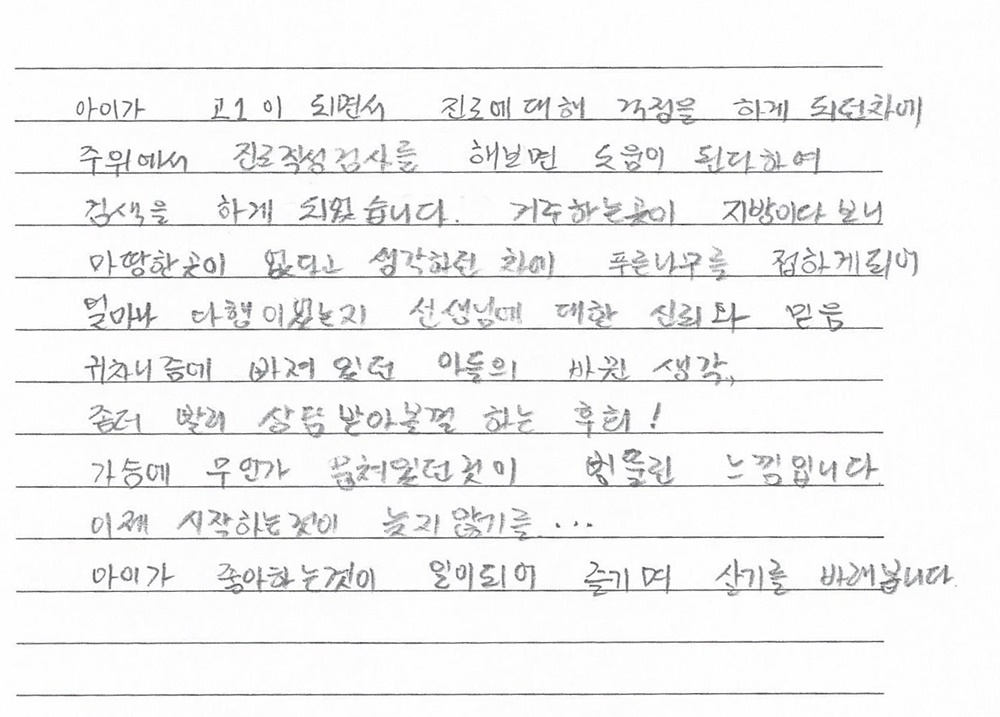 아이가 고1이 되면서 진로에대해 걱정을 하게 되던차에
주위에서 진로적성검사를 해보면 도움이 된다하여
검색을 하게 되었습니다. 거주하는곳이 지방이다보니
마땅한곳이 없다고 생각하던 차에 푸른나무를 접하게되어
얼마나 다행이었는지 선생님에 대한 신뢰와 믿음
귀차니즘에 빠져있던 아들의 바뀐 생각,,
좀더 빨리 상담받아볼껄 하는 후회!
가슴에 무언가 뭉쳐있던것이 풀린 느낌입니다
이제 시작하는것이 늦지않기를...
아이가 좋아하는것이 일이되어 즐기며 살기를 바래봅니다.